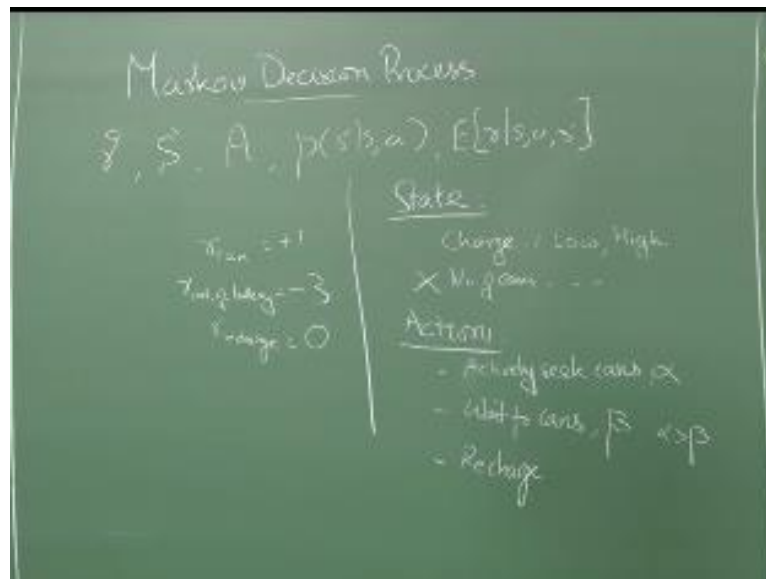 Markov Decision Process
γ, S, A, p(s'|s,a), E[r|s,a,s']
r = +1
= -3
r recharge = 0
State
Charge : Low, High
X No. of cans - - -
Action
- Actively seek cans α
- Wait for cans, β α>β
- Recharge